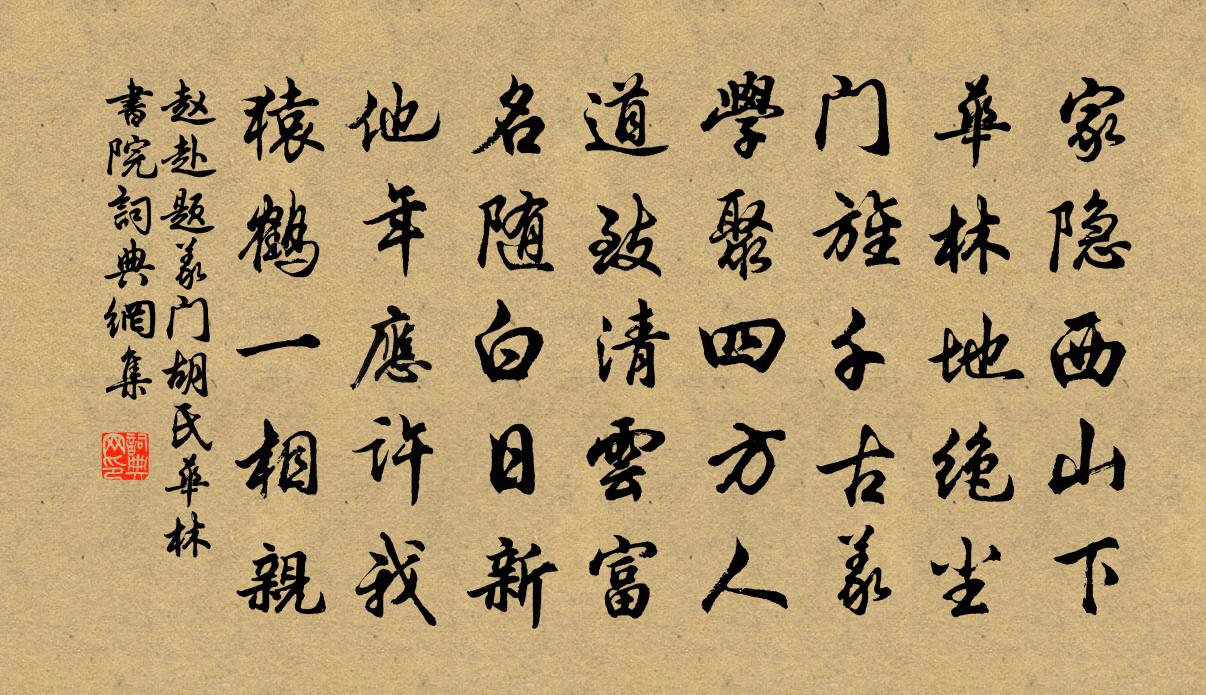 家隐西山下
華林地绝尘
门旌千古義
學聚四方人
道致清雲富
名随白日新
他年應许我
猿鹤一相親
赵赴题義门胡氏華林
書院詞典網集
詞典
网印